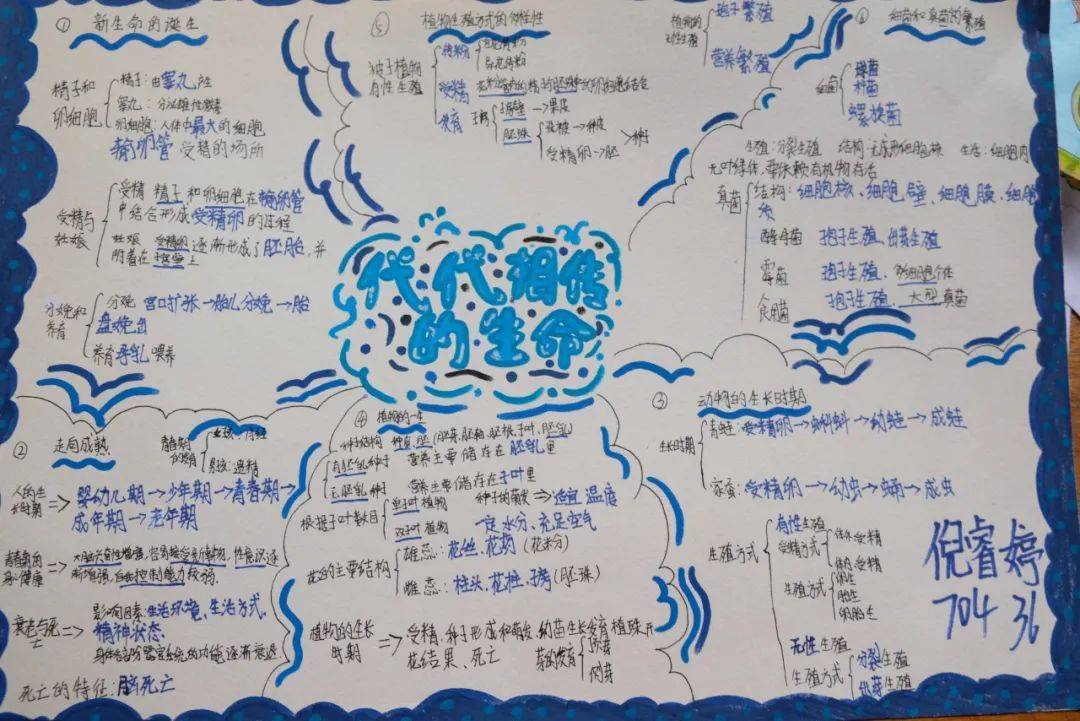 ① 新生命的诞生
精子和卵细胞
精子:由睾丸产生
睾丸:分泌雄性激素
卵细胞:人体中最大的细胞
输卵管 受精的场所
受精与妊娠
受精 精子和卵细胞在输卵管
中结合形成受精卵的过程
妊娠 受精卵逐渐形成了胚胎,并
附着在子宫壁上
分娩和养育
分娩 宫口扩张→胎儿分娩→胎
盘娩出
养育 母乳喂养
② 走向成熟
青春期
女孩:月经
男孩:遗精
人的生长时期 ⇒ 婴幼儿期→少年期→青春期→
成年期→老年期
青春期的身心健康 ⇒
性意识逐
渐增强,自我控制能力较弱.
衰老与死亡 ⇒ 影响因素:生活环境、生活方式、
精神状态.
身体各器官系统的功能逐渐衰退
死亡的特征:脑死亡
⑤ 植物生殖方式的多样性
被子植物有性生殖
传粉
自花传粉
异花传粉
受精
发育
子房
子房壁→果皮
胚珠
珠被→种皮
受精卵→胚
>种子
植物的无性生殖
孢子繁殖
营养繁殖
⑥ 细菌和真菌的繁殖
细菌
球菌
杆菌
螺旋菌
生殖:分裂生殖 结构:无成形细胞核 生活:细胞内
无叶绿体,要依赖有机物存活
真菌
结构:细胞核、细胞壁、细胞膜、细胞
质
酵母菌 孢子生殖、出芽生殖
霉菌 孢子生殖、多细胞个体
食用菌 孢子生殖、大型真菌
代代相传
的生命
④ 植物的一生
种子结构 种皮、胚(胚芽、胚轴、胚根、子叶、胚乳)
有胚乳种子 营养主要储存在胚乳里
无胚乳种子 营养主要储存在子叶里
根据子叶数目
单子叶植物
双子叶植物
种子的萌发⇒适宜温度
一定水分、充足空气
花的主要结构
雄蕊:花丝、花药(花粉)
雌蕊:柱头、花柱、子房(胚珠)
植物的生长时期 ⇒ 受精、种子形成和萌发、幼苗生长发育、植株开
花结果、死亡
芽的发育
顶芽
侧芽
③ 动物的生长时期
生长时期
青蛙:受精卵→蝌蚪→幼蛙→成蛙
家蚕:受精卵→幼虫→蛹→成虫
生殖方式
有性生殖
受精方式
体外受精
体内受精
生殖方式
卵生
胎生
卵胎生
无性生殖
生殖方式
分裂生殖
出芽生殖
倪睿婷
704 36